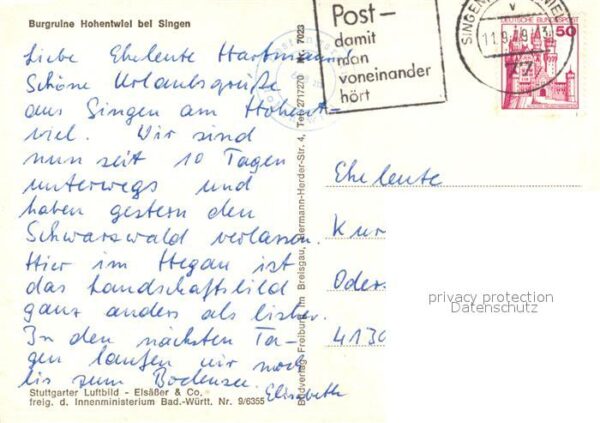 Burgruine Hohentwiel bei Singen
Liebe Eheleute Hartmann
Schöne Urlaubsgrüße
aus Singen am Hohent-
viel. Wir sind
nun seit 10 Tagen
unterwegs und
haben gestern den
Schwarzwald verlassen.
Hier im Hegau ist
das Landschaftsbild
ganz anders als bisher.
In den nächsten Ta-
gen laufen wir noch
bis zum Bodensee.
Elisabeth
Stuttgarter Luftbild - Elsäßer & Co.
freig. d. Innenministerium Bad.-Württ. Nr. 9/6355
Bildverlag Freiburg im Breisgau, Hermann-Herder-Str. 4, Tel. 2717270
7023
Post-
damit
man
voneinander
hört
SINGEN
DEUTSCHE BUNDESPOST
50
Eheleute
Kur
Oder
4130
privacy protection
Datenschutz